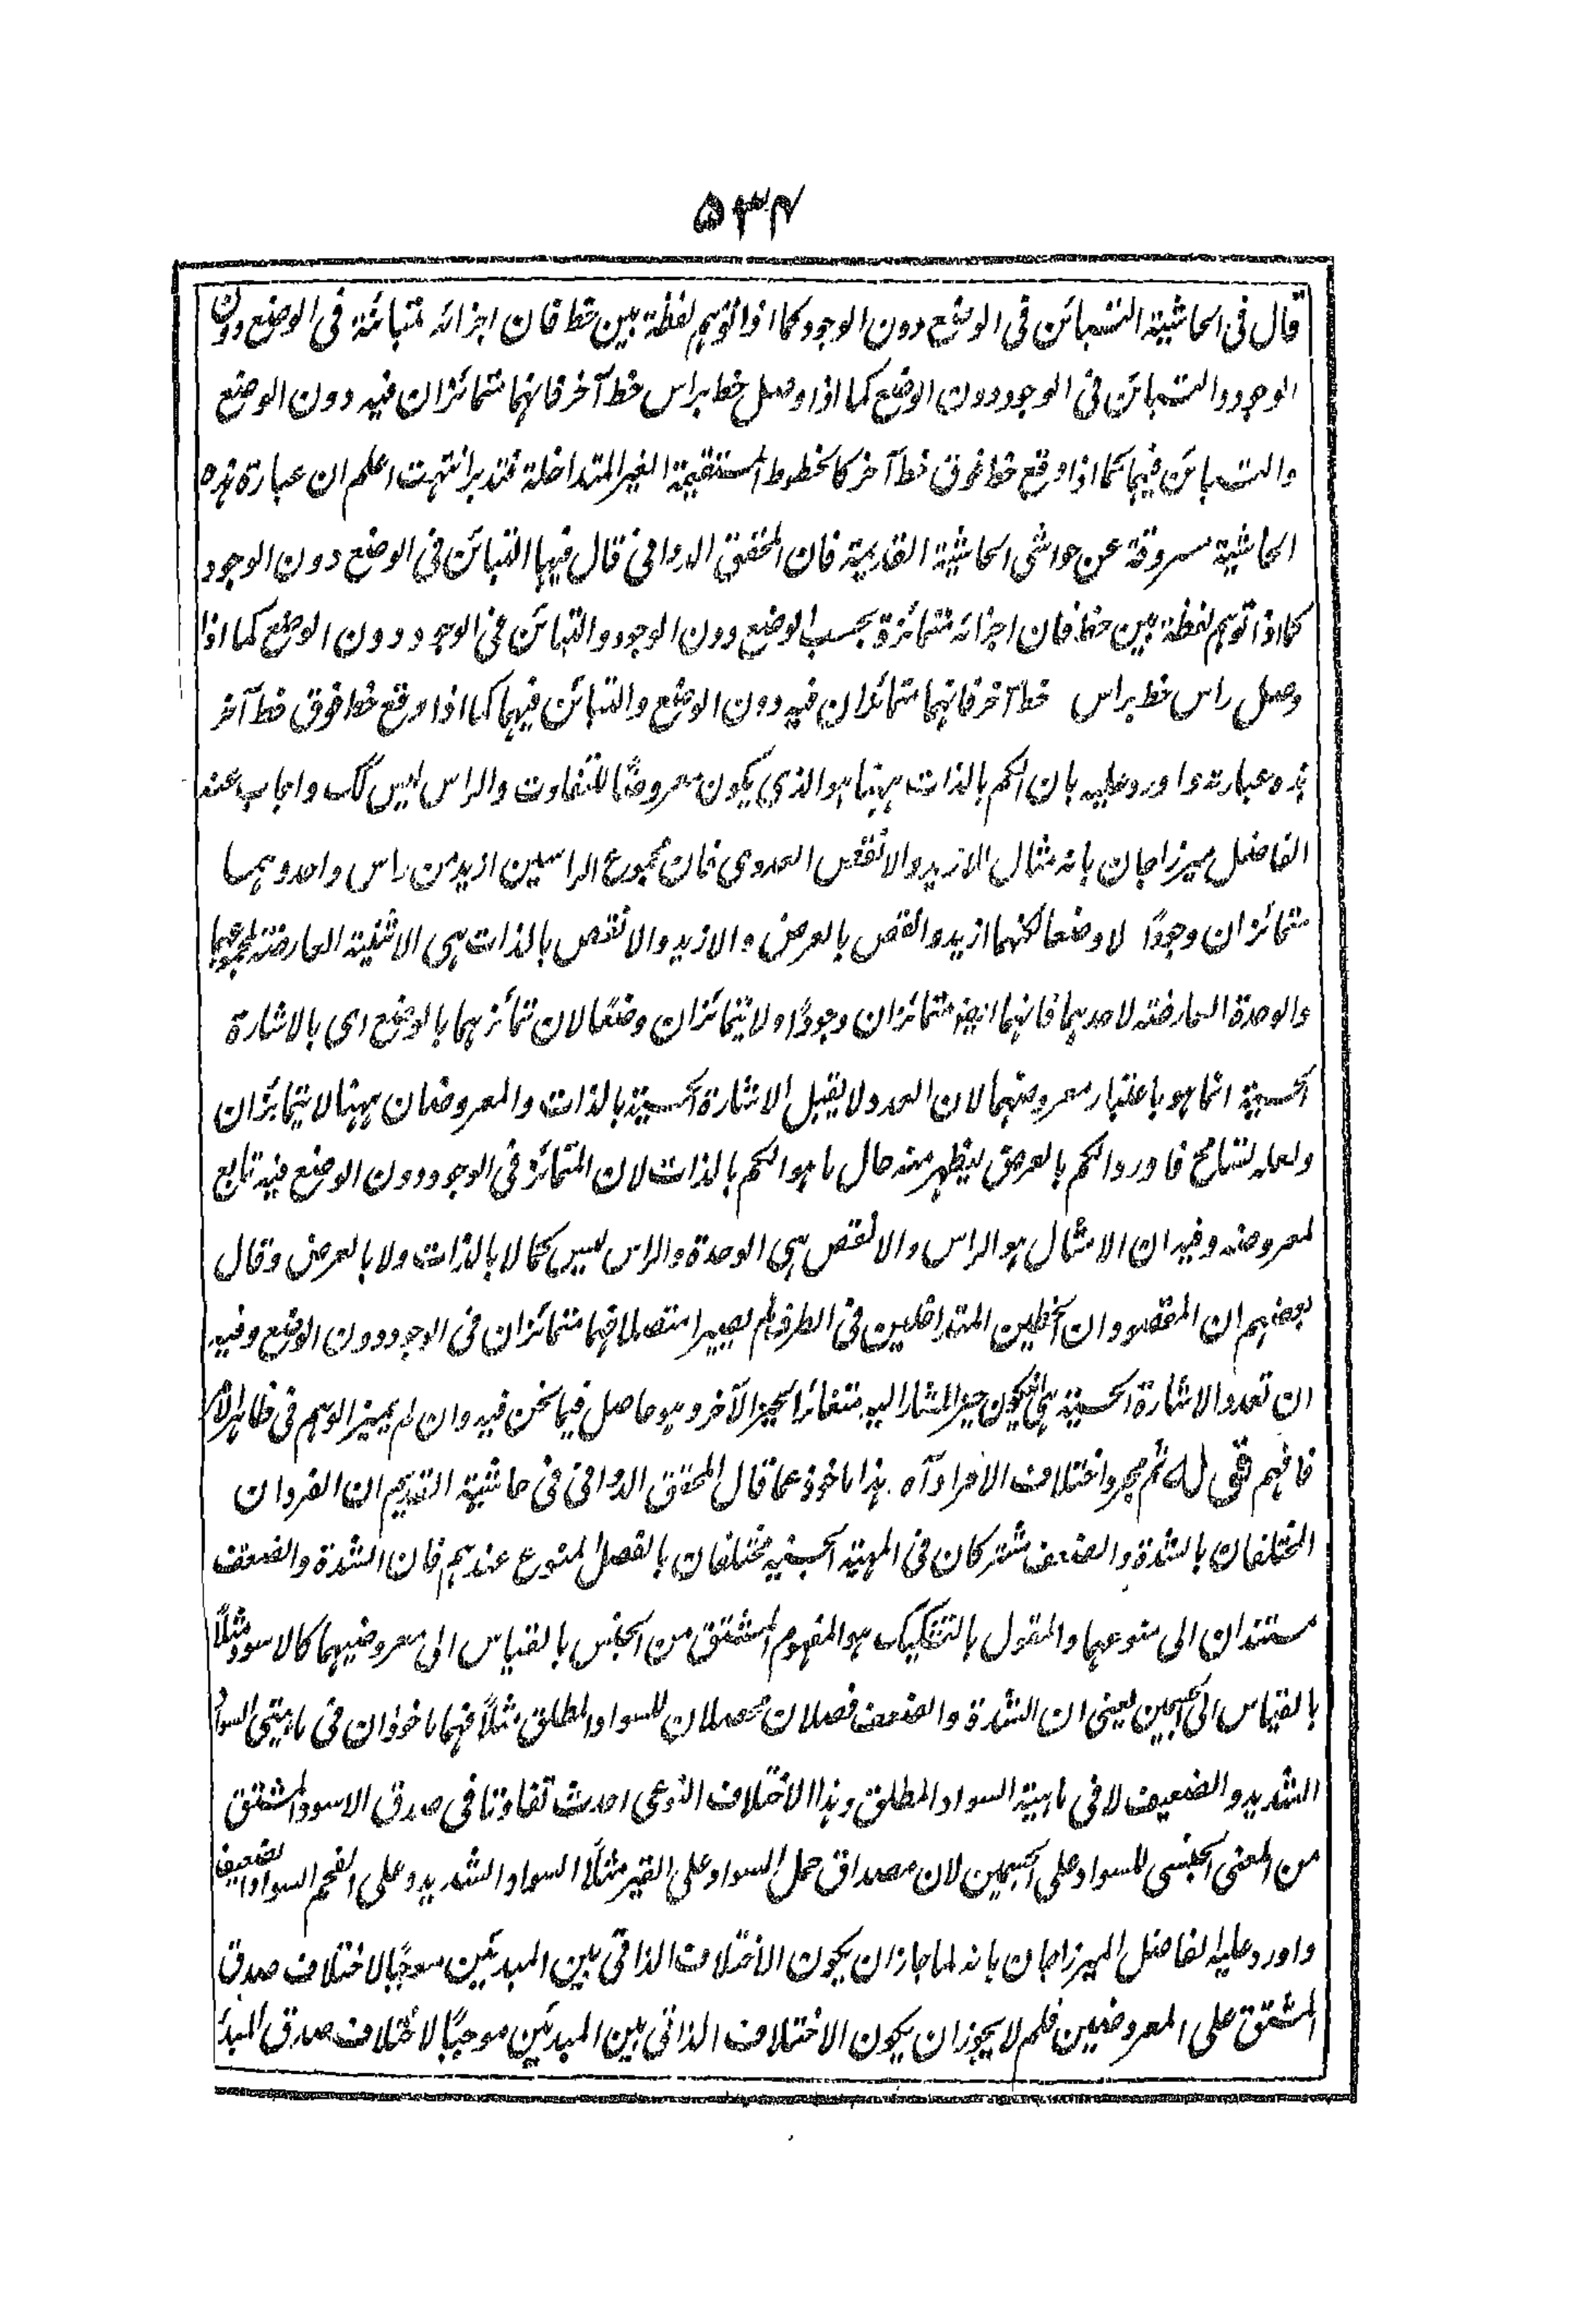 ۵۳۴
قال فى الحاشية التباين فى الوضع دون الوجود كما اذا توهم نقطة بين خط فان اجزائه متبائنة فى الوضع دون
الوجود والتبائن فى الوجود دون الوضع كما اذا وصل خط براس خط آخر فانهما متمائزان فيه دون الوضع
والتبائن فيهما كما اذا وقع خط فوق خط آخر كالخطوط المستقيمة الغير المتداخلة فتدبر انتهت اعلم ان عبارة هذه
الحاشية مسروقة عن حواشى الحاشية القديمة فان المحقق الدوانى قال فيها التبائن فى الوضع دون الوجود
كما اذا توهم نقطة بين خط فان اجزائه متمائزة بحسب الوضع دون الوجود والتبائن فى الوجود دون الوضع كما اذا
وصل راس خط براس خط آخر فانهما متمائزان فيه دون الوضع والتبائن فيهما كما اذا وقع خط فوق خط آخر
هذه عبارته واورد عليه بان الكم بالذات ههنا هو الذي يكون معروضًا للتفاوت والراس ليس كك واجاب عنه
الفاضل ميرزاجان بانه مثال الازيد والانقص العددى فان مجموع الراسين ازيد من راس واحد وهما
متمائزان وجودًا لا وضعا لكنهما ازيد وانقص بالعرض والازيد والانقص بالذات هى الاثنينية العارضة لمجموعهما
والوحدة العارضة لاحدهما فانهما ايضا متمائزان وجودًا ولا يتمائزان وضعًا لان تمائزهما بالوضع اى بالاشارة
الحسية انما هو باعتبار معروضهما لان العدد لا يقبل الاشارة الحسية بالذات والمعروضان ههنا لا يتمائزان
ولعله تسامح فاورد الكم بالعرض ليظهر منه حال ما هو الكم بالذات لان التمائز فى الوجود دون الوضع فيه تابع
لمعروضه وفيه ان الامثال هو الراس والانقص هى الوحدة والراس ليس كما لا بالذات ولا بالعرض وقال
بعضهم ان المقصود ان الخطين المتداخلين فى الطرف لم يصيرا متصلا فهما متمائزان فى الوجود دون الوضع وفيه
ان تعدد الاشارة الحسية هى ان يكون حيز المشار اليه متغائرا لحيز الآخر وهو حاصل فيما نحن فيه وان لم يميز الوهم فى ظاهر الامر
فافهم قوله ثم مجرد اختلاف الافراد آه. هذا ماخوذ عما قال المحقق الدوانى فى حاشية القديم ان الفردان
المختلفان بالشدة والضعف مشتركان فى المهية الجنسية مختلفان بالفصل المنوع عندهم فان الشدة والضعف
مستندان الى منوعهما والمقول بالتشكيك هو المفهوم المشتق من الجنس بالقياس الى معروضيهما كالاسود مثلًا
بالقياس الى الجسمين يعنى ان الشدة والضعف فصلان محصلان للسواد المطلق مثلًا فهما ماخوذان فى ماهيتى السواد
الشديد والضعيف لا فى ماهية السواد المطلق وهذا الاختلاف النوعى احدث تفاوتا فى صدق الاسود المشتق
من المعنى الجنسى للسواد على الجسمين لان مصداق حمل السواد على القير مثلًا السواد الشديد وعلى الفحم السواد الضعيف
واورد عليه الفاضل الميرزاجان بانه لما جاز ان يكون الاختلاف الذاتى بين المبدئين موجبًا لاختلاف صدق
المشتق على المعروضين فلم لا يجوز ان يكون الاختلاف الذاتى بين المبدئين موجبًا لاختلاف صدق المبدأ